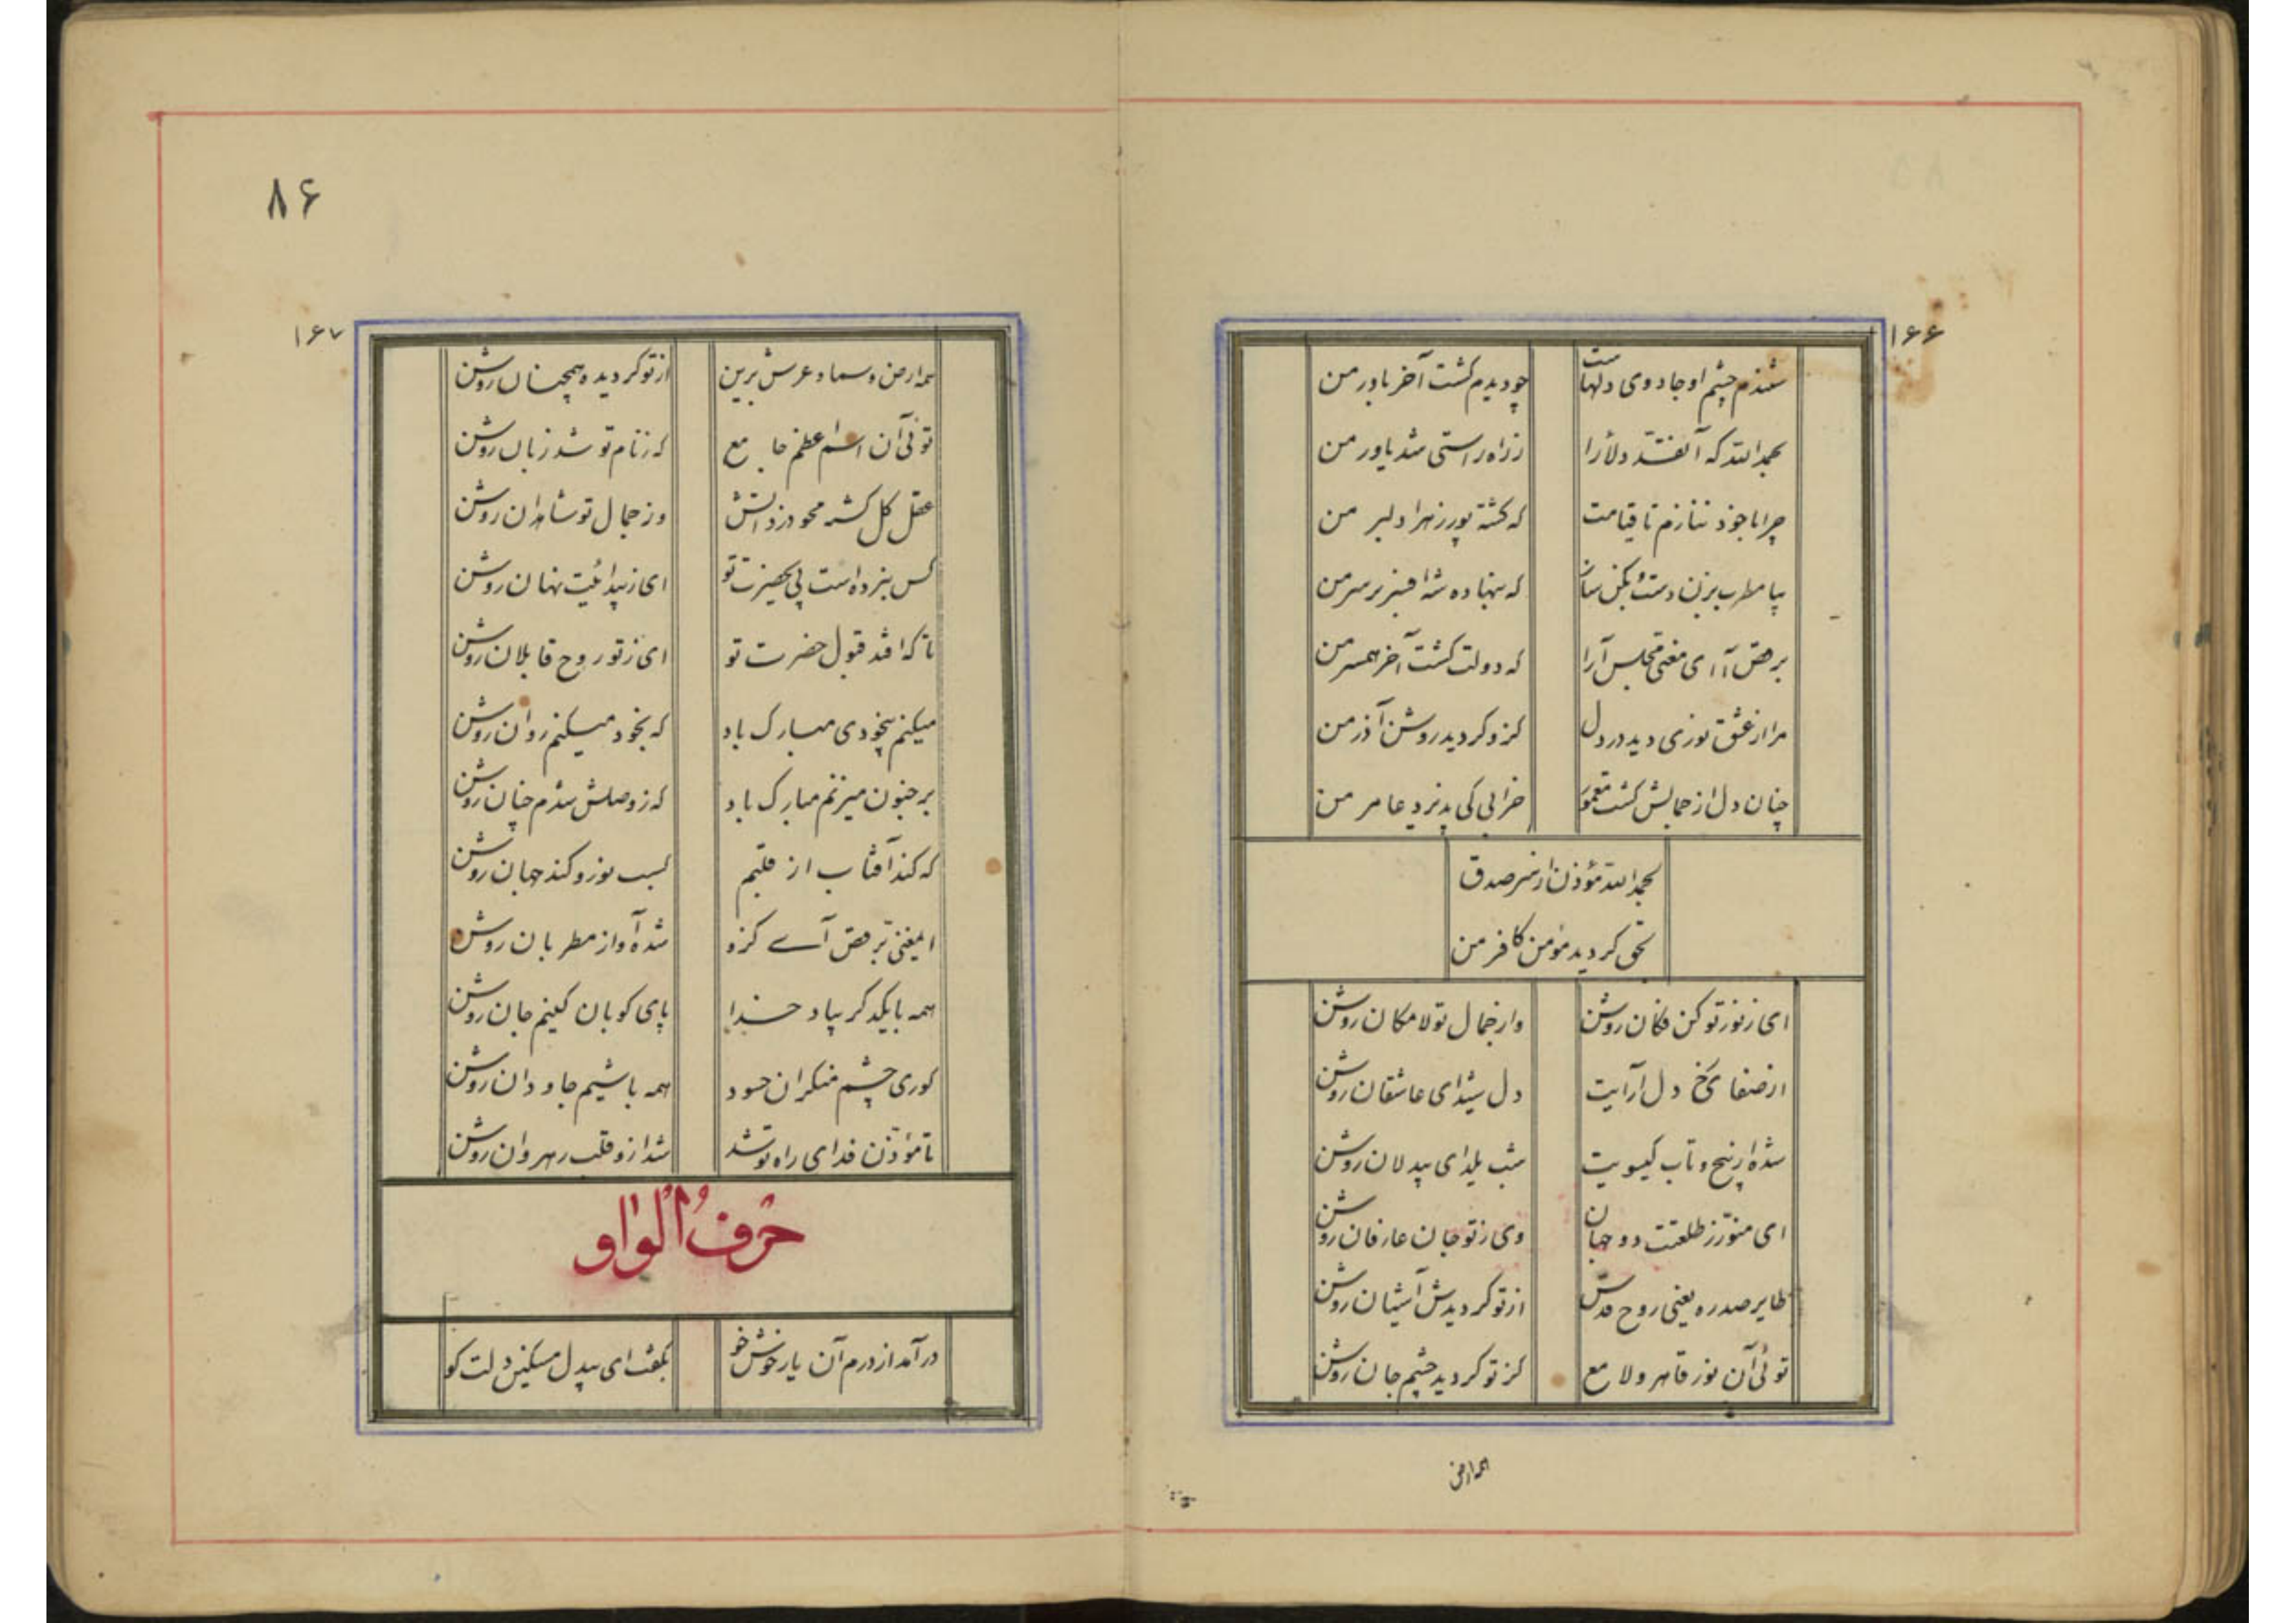 ۱۶۶
شنیدم چشم او جادوی دلهاست
چو دیدم گشت آخر باور من
بحمدالله که آن قد دلارا
ز راه راستی شد یاور من
چرا با خود ننازم تا قیامت
که گشته پور زهرا دلبر من
بیا مطرب بزن دست و بکن ساز
که بنهاده شه افسر بر سر من
برقص آ ای مغنی مجلس آرا
که دولت گشت آخر همسر من
مرا از عشق نوری دید در دل
کزو گردید روشن آذر من
چنان دل از جمالش گشت معمور
خرابی کی پذیرد عامر من
بحمدالله مؤذن از سر صدق
بحق گردید مؤمن کافر من
ای ز نور تو کن فکان روشن
و از جمال تو لامکان روشن
از صفای رخ دل آرایت
دل شیدای عاشقان روشن
شده از پیچ و تاب گیسویت
شب یلدای بیدلان روشن
ای منور ز طلعتت دو جهان
وی ز تو جان عارفان روشن
طایر صدره یعنی روح قدس
از تو گردیدش آشیان روشن
توئی آن نور قاهر و لامع
کز تو گردید چشم جان روشن
همه ارض
۸۶
۱۶۷
همه ارض و سما و عرش برین
از تو گردیده همچنان روشن
توئی آن اسم اعظم جامع
که ز نام تو شد زبان روشن
عقل کل گشته محو در ذاتش
وز جمال تو شاهدان روشن
کس نبرده است پی بحضرت تو
ای ز پیدائیت نهان روشن
تا که افتد قبول حضرت تو
ای ز تو روح قابلان روشن
میکنم بیخودی مبارک باد
که بخود میکنم روان روشن
بر جنون میزنم مبارک باد
که ز وصلش شدم چنان روشن
که کند آفتاب از قلبم
کسب نور و کند جهان روشن
ایمغنی برقص آی کزو
شده آواز مطربان روشن
همه با یکدگر بیاد خدا
پای کوبان کنیم جان روشن
کوری چشم منکران حسود
همه باشیم جاودان روشن
تا مؤذن فدای راه تو شد
شد ازو قلب رهروان روشن
حرف الواو
در آمد از درم آن یار خوش خو
بگفت ای بیدل مسکین دلت کو